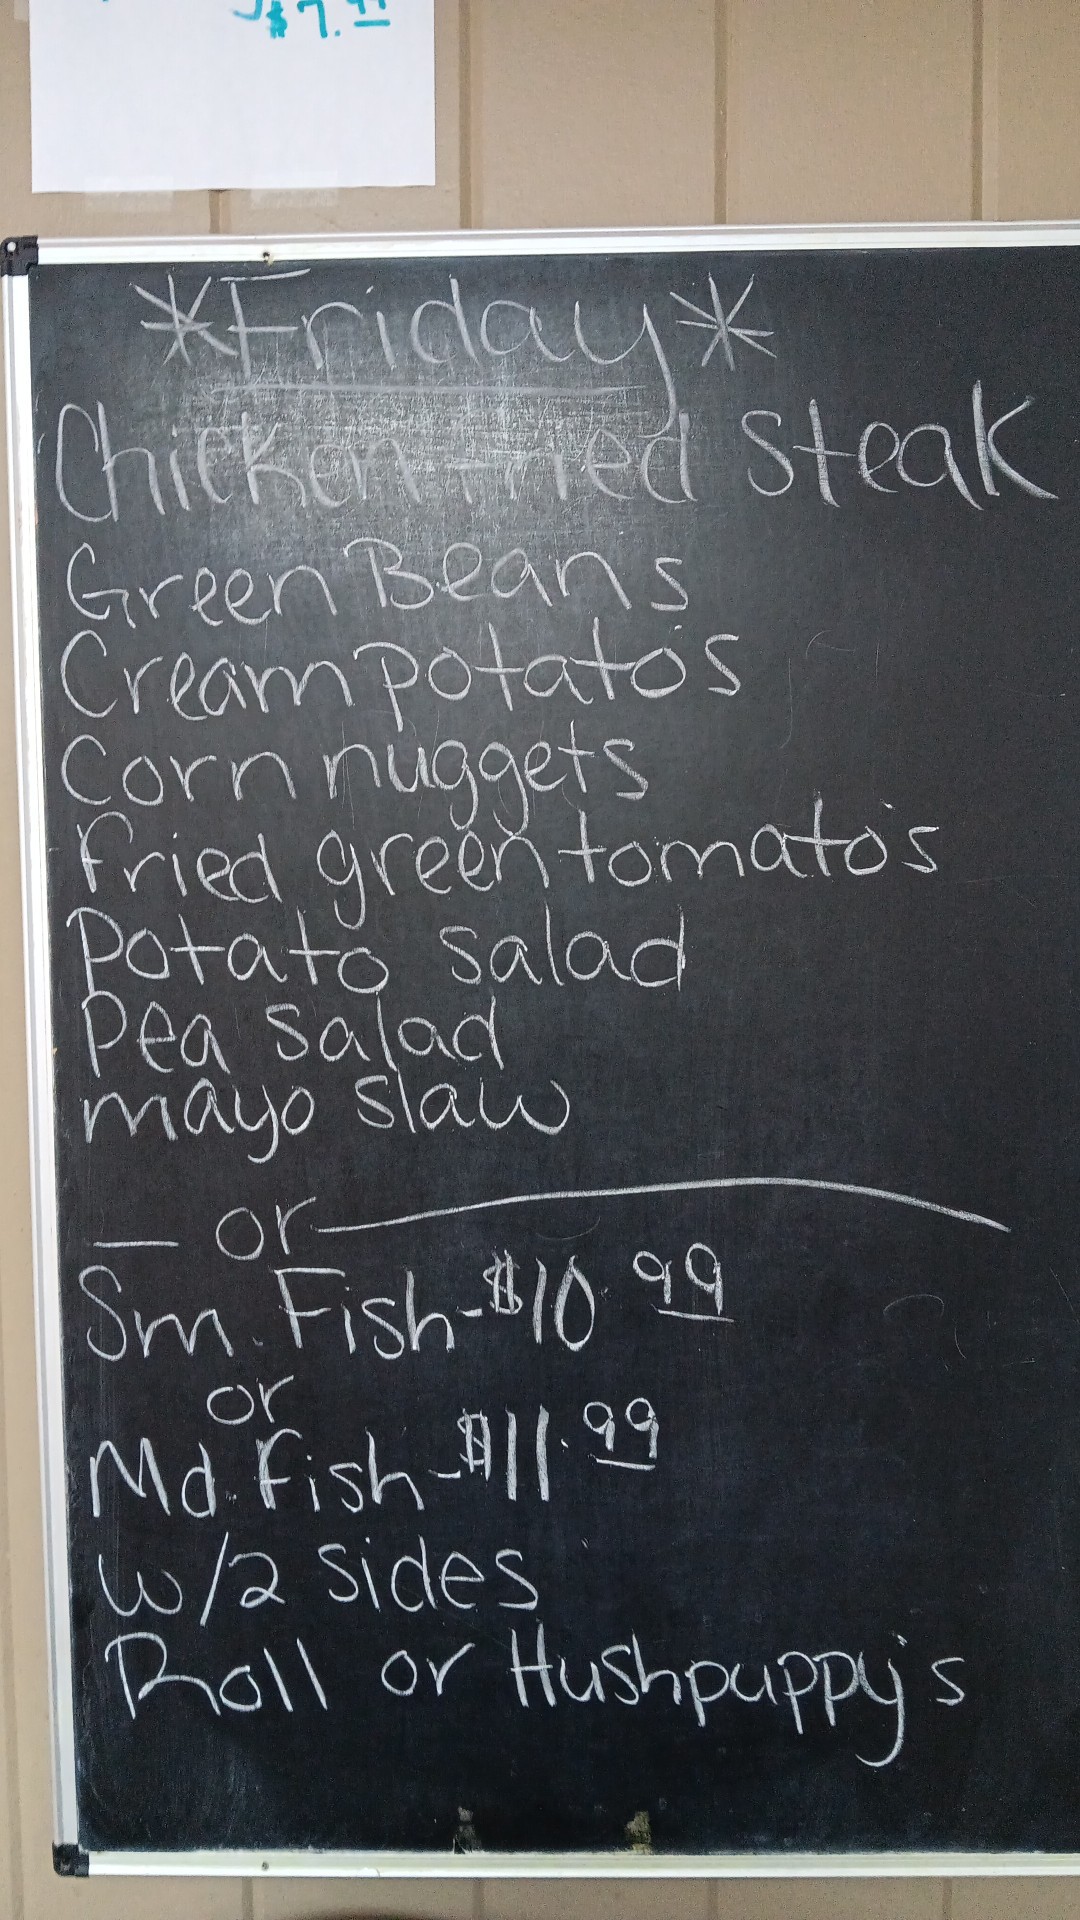 $7.99
*Friday*
Chicken fried Steak
Green Beans
Cream potato's
Corn nuggets
Fried green tomato's
Potato salad
Pea salad
mayo slaw
— or —
Sm. Fish-$10.99
or
Md. Fish-$11.99
w/2 sides
Roll or Hushpuppy's